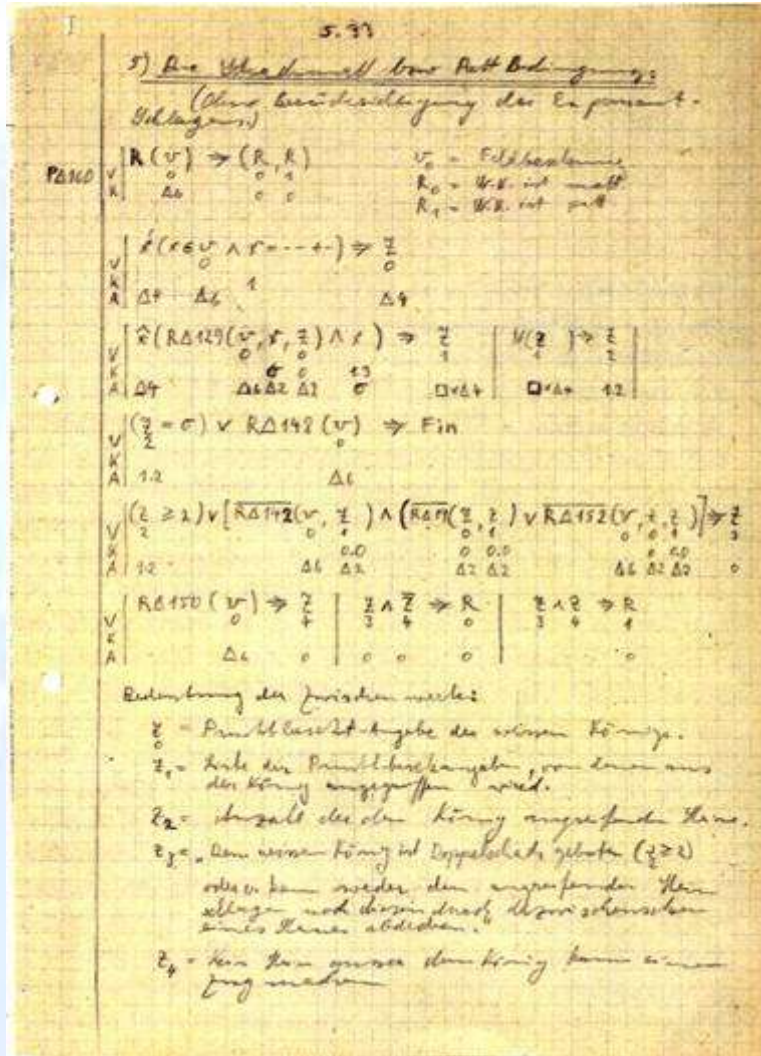 5.33
5) Die Schachmatt bzw Patt Bedingung:
(Ohne Berücksichtigung des En passant-
Schlagens)
PΔ160
R(v) ⇒ (R, R)
v₀ = Feldbesetzung
V 0 0 1
R₀ = W.K. ist matt
K Δ6 0 0
R₁ = W.K. ist patt
x́(x∈v ∧ x = --+-) ⇒ Z
V 0 0
K 1
A Δ4 Δ6 Δ4
x̂(RΔ129(v, x, Z) ∧ x) ⇒ Z | N(Z) ⇒ Z
V 0 0 1 1 2
K σ 0 1.3
A Δ4 Δ6 Δ2 Δ2 σ □×Δ4 □×Δ4 1.2
(Z = σ) ∨ RΔ148(v) ⇒ Fin
V 2 0
K
A 1.2 Δ6
(Z ≥ 2) ∨ [RΔ142(v, Z) ∧ (RΔ19(Z, Z) ∨ RΔ152(v, Z, Z)] ⇒ Z
V 2 0 1 0 1 0 0 1 3
K 0.0 0 0.0 0 0.0
A 1.2 Δ6 Δ2 Δ2 Δ2 Δ6 Δ2 Δ2 0
RΔ150(v) ⇒ Z | Z ∧ Z̅ ⇒ R | Z ∧ Z ⇒ R
V 0 4 3 4 0 3 4 1
K
A Δ6 0 0 0 0 0
Bedeutung der Zwischenwerte:
Z₀ = Punktbesetzt-Angabe des weissen Königs.
Z₁ = Liste der Punktbesetztangaben, von denen aus
der König angegriffen wird.
Z₂ = Anzahl der den König angreifenden Steine.
Z₃ = „Dem weissen König ist Doppelschach geboten (Z₂≥2)
oder er kann weder den angreifenden Stein
schlagen noch diesen durch Dazwischenziehen
eines Steines abdecken."
Z₄ = Kein Stein ausser dem König kann einen
Zug machen